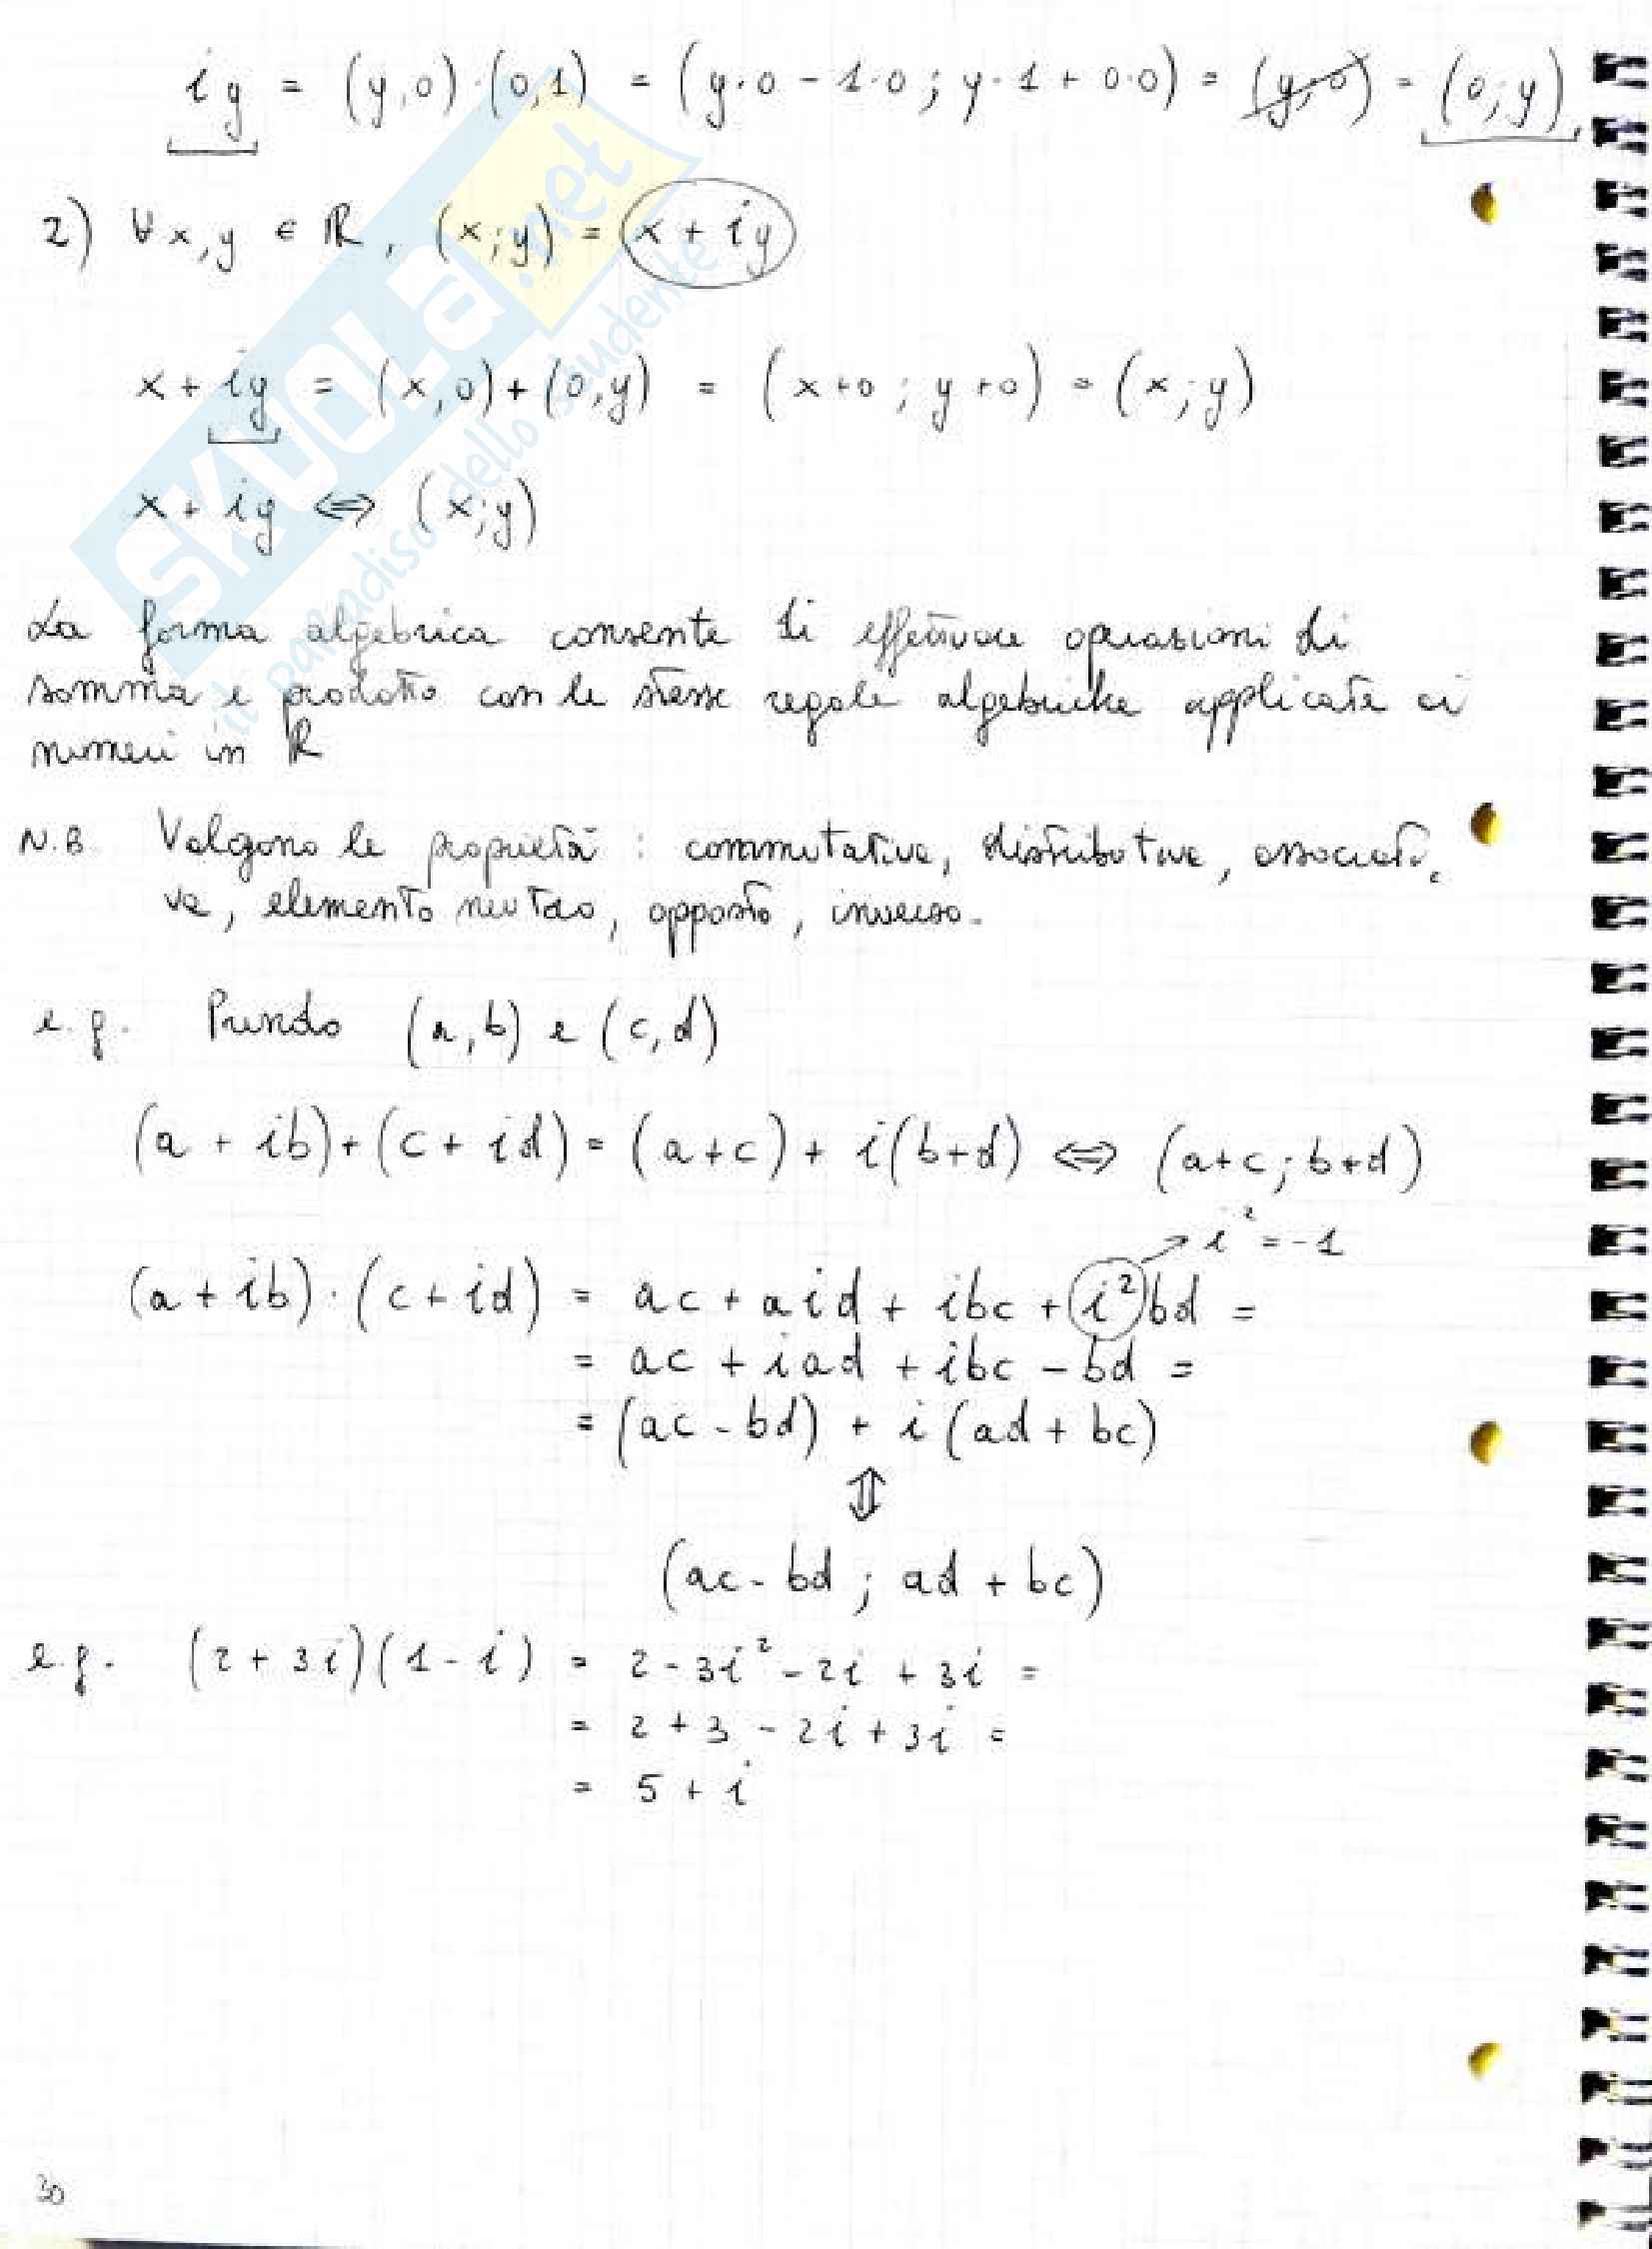 iy = (y,0)·(0,1) = (y·0 - 1·0 ; y·1 + 0·0) = (y,0) = (0;y)
2) ∀x,y ∈ ℝ, (x;y) = x + iy
x + iy = (x,0) + (0,y) = (x+0 ; y+0) = (x;y)
x + iy ⇔ (x;y)
La forma algebrica consente di effettuare operazioni di
somma e prodotto con le stesse regole algebriche applicate ai
numeri in ℝ
N.B. Valgono le proprietà : commutativa, distributiva, associati
va, elemento neutro, opposto, inverso.
e.g. Prendo (a,b) e (c,d)
(a + ib) + (c + id) = (a+c) + i(b+d) ⇔ (a+c ; b+d)
→ i² = -1
(a + ib)·(c + id) = ac + aid + ibc + i²bd =
= ac + iad + ibc - bd =
= (ac - bd) + i(ad + bc)
⇕
(ac - bd ; ad + bc)
e.g. (2 + 3i)(1 - i) = 2 - 3i² - 2i + 3i =
= 2 + 3 - 2i + 3i =
= 5 + i
30
SKUOLa.net
il paradiso dello studente